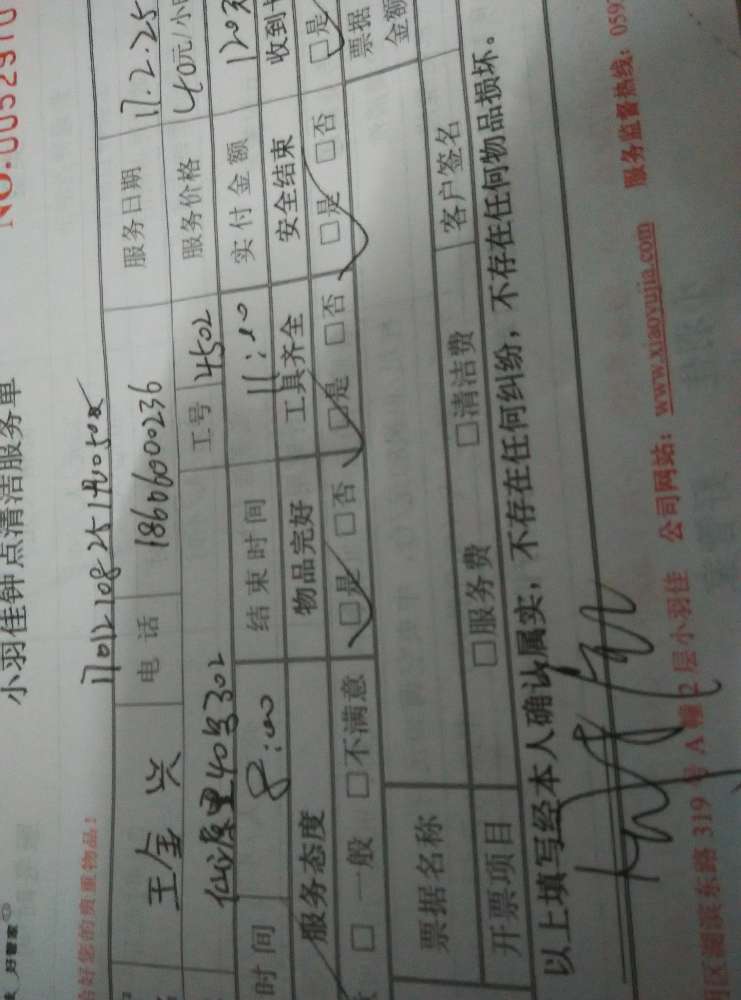 好管家
小羽佳钟点清洁服务单
NO:0052910
好您的贵重物品!
王金兴 电话 18606600236 服务日期 17.2.25
仙岳里40号302 工号 4502 服务价格 40元/小
时间 8:00 结束时间 11:00 实付金额 120元
服务态度 物品完好 工具齐全 安全结束 收到
□一般 □不满意 □是 □否 □是 □否 □是 □否 □是
票据名称 票据金额
开票项目 □服务费 □清洁费 客户签名
以上填写经本人确认属实,不存在任何纠纷,不存在任何物品损坏。
区湖滨东路 319 号 A 幢 2 层小羽佳 公司网站:www.xiaoyujia.com 服务监督热线:059